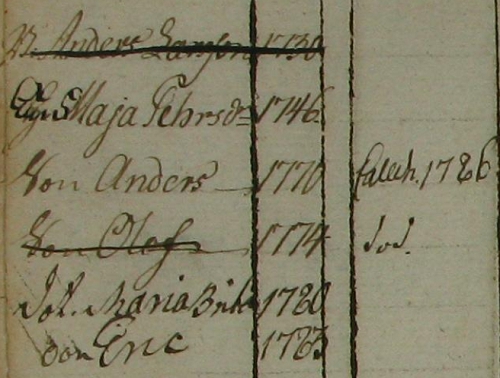 Anders Larsson 1730
Maja Pehrsdr 1746
Son Anders 1770 Catech. 1786
Son Olof 1774 död.
Dot. Maria Brita 1780
Son Eric 1783